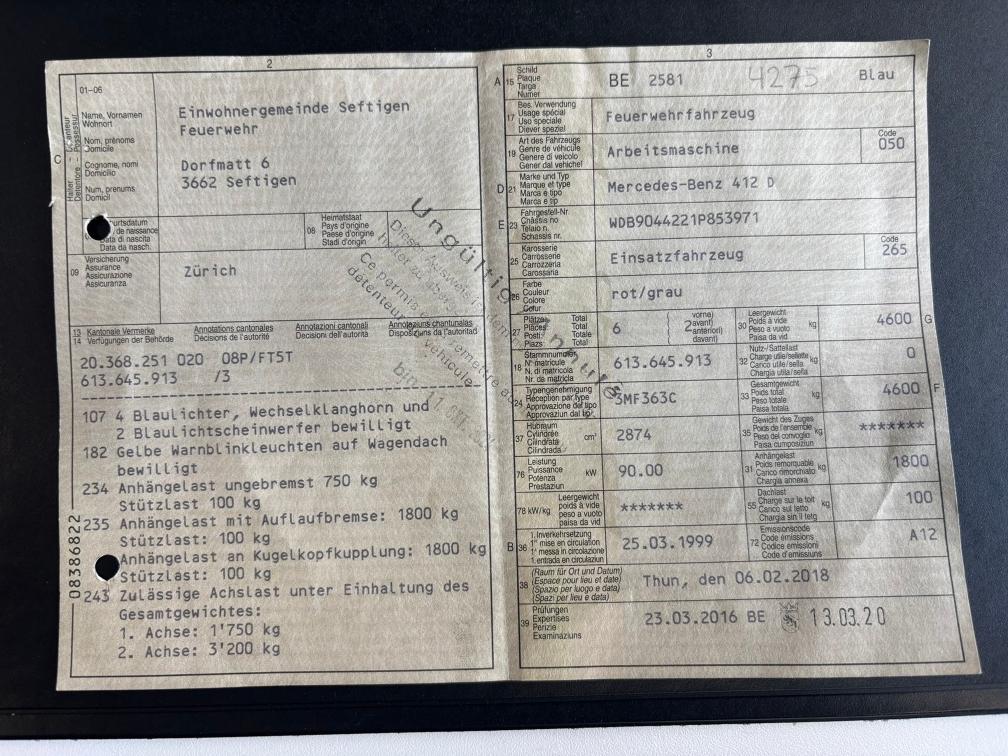 2
01-06
Name, Vornamen
Wohnort
Nom, prénoms
Domicile
Cognome, nomi
Domicilio
Num, prenums
Domicil
C
Halter
Détenteur
Detentore
Possessur
Einwohnergemeinde Seftigen
Feuerwehr
Dorfmatt 6
3662 Seftigen
de naissance
Data di nascita
Data da nasch.
08
Heimatstaat
Pays d'origine
Paese d'origine
Stadi d'origin
09
Versicherung
Assurance
Assicurazione
Assicuranza
Zürich
13
14
Kantonale Vermerke
Verfügungen der Behörde
Annotations cantonales
Décisions de l'autorité
Annotazioni cantonali
Decisioni dell'autorità
Annotaziuns chantunalas
Disposiziuns da l'autoritad
20.368.251 020 08P/FT5T
613.645.913 /3
107 4 Blaulichter, Wechselklanghorn und
2 Blaulichtscheinwerfer bewilligt
182 Gelbe Warnblinkleuchten auf Wagendach
bewilligt
234 Anhängelast ungebremst 750 kg
Stützlast 100 kg
235 Anhängelast mit Auflaufbremse: 1800 kg
Stützlast: 100 kg
Anhängelast an Kugelkopfkupplung: 1800 kg
Stützlast: 100 kg
243 Zulässige Achslast unter Einhaltung des
Gesamtgewichtes:
1. Achse: 1'750 kg
2. Achse: 3'200 kg
08386822
Ungültig - Annulé
Dieser Ausweis ist dem
Ce permis
détenteur
véhicule
bin
11.
3
A
15
Schild
Plaque
Targa
Numer
BE 2581
4275
Blau
17
Bes. Verwendung
Usage spécial
Uso speciale
Diever spezial
Feuerwehrfahrzeug
19
Art des Fahrzeugs
Genre de véhicule
Genere di veicolo
Gener dal vehichel
Arbeitsmaschine
Code
050
D
21
Marke und Typ
Marque et type
Marca e tipo
Marca e tip
Mercedes-Benz 412 D
E
23
Fahrgestell-Nr.
Châssis no
Telaio n.
Schassis nr.
WDB9044221P853971
25
Karosserie
Carrosserie
Carrozzeria
Carossaria
Einsatzfahrzeug
Code
265
26
Farbe
Couleur
Colore
Colur
rot/grau
27
Plätze
Places
Posti
Plazs
Total
Total
Totale
Total
6
2
vorne)
avant)
anteriori)
davant)
30
Leergewicht
Poids à vide
Peso a vuoto
Paisa da vid
kg
4600
G
18
Stammnummer
N° matricule
N. di matricola
Nr. da matricla
613.645.913
32
Nutz-/Sattellast
Charge utile/sellette
Carico utile/sella
Chargia utila/sella
kg
0
24
Typengenehmigung
Réception par type
Approvazione del tipo
Approvaziun dal tip
3MF363C
33
Gesamtgewicht
Poids total
Peso totale
Paisa totala
kg
4600
F
37
Hubraum
Cylindrée
Cilindrata
Cilindrada
cm³
2874
35
Gewicht des Zuges
Poids de l'ensemble
Peso del convoglio
Paisa cumposiziun
kg
*******
76
Leistung
Puissance
Potenza
Prestaziun
kW
90.00
31
Anhängelast
Poids remorquable
Carico rimorchiato
Chargia annexa
kg
1800
78 kW/kg
Leergewicht
poids à vide
peso a vuoto
paisa da vid
*******
55
Dachlast
Charge sur le toit
Carico sul tetto
Chargia sin il tetg
kg
100
B
36
1. Inverkehrsetzung
1re mise en circulation
1a messa in circolazione
1. entrada en circulaziun
25.03.1999
72
Emissionscode
Code émissions
Codice emissioni
Code d'emissiuns
A12
38
(Raum für Ort und Datum)
(Espace pour lieu et date)
(Spazio per luogo e data)
(Spazi per lieu e data)
Thun, den 06.02.2018
39
Prüfungen
Expertises
Perizie
Examinaziuns
23.03.2016 BE
13.03.20